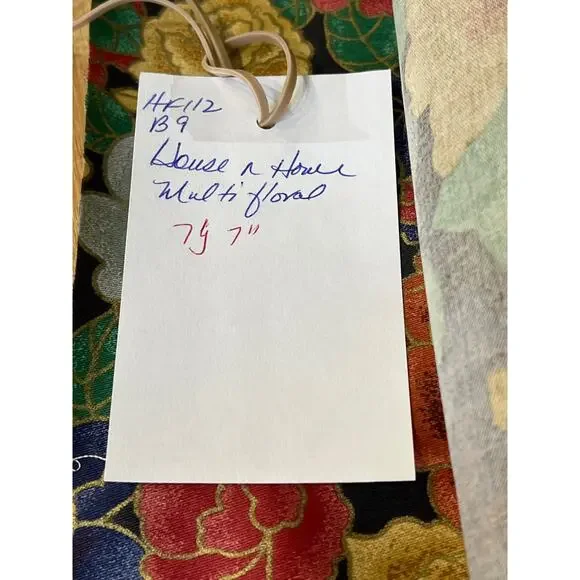 HF112
B9
House n Home
Multi floral
7y 7"